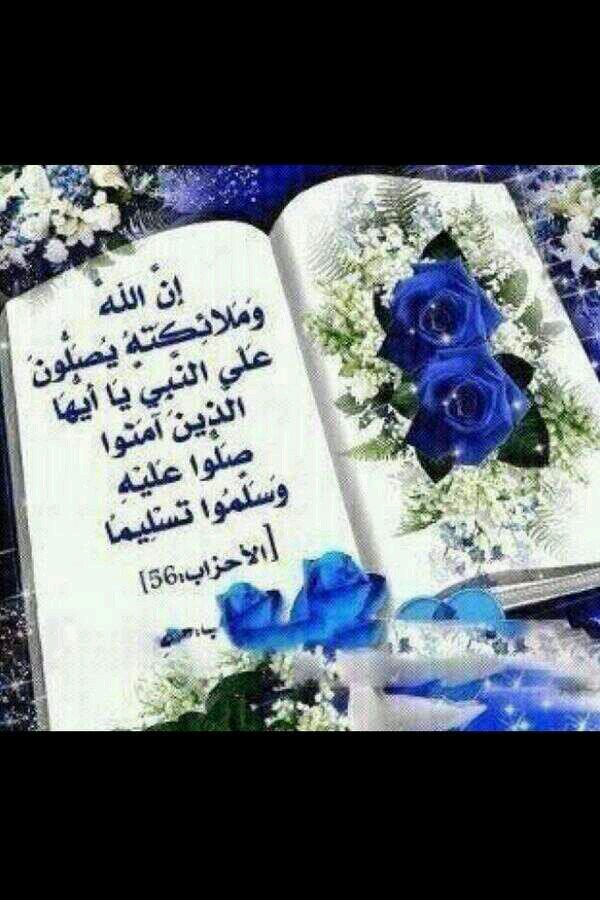 إنَّ اللهَ
وَمَلائِكتَهُ يُصَلُّونَ
عَلَى النَّبي يَا أيُّهَا
الذِينَ آمَنوا
صَلُّوا عَليْهِ
وَسَلِّمُوا تَسْلِيمَا
[الأحزاب:56]